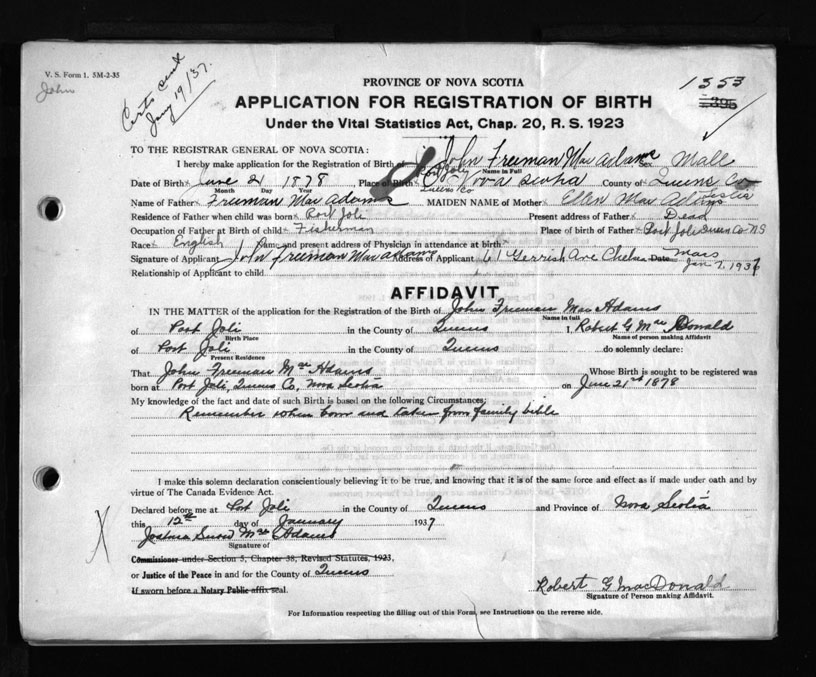 V. S. Form 1. 5M-2-35
John
Certs sent
Jany 19/37.
1553
1395
PROVINCE OF NOVA SCOTIA
APPLICATION FOR REGISTRATION OF BIRTH
Under the Vital Statistics Act, Chap. 20, R. S. 1923
TO THE REGISTRAR GENERAL OF NOVA SCOTIA:
I hereby make application for the Registration of Birth of John Freeman Mac Adams Sex Male
Name in Full
Port Joly
Date of Birth June 21 1878 Place of Birth Nova Scotia County of Queens Co
Month Day Year Queens Co
Name of Father Freeman Mac Adams MAIDEN NAME of Mother Ellen Mac Adams
Residence of Father when child was born Port Joli Present address of Father Dead
Occupation of Father at Birth of child Fisherman Place of birth of Father Port Joli Queens Co NS
Race English Name and present address of Physician in attendance at birth
Signature of Applicant John freeman Mac adams Address of Applicant 61 Gerrish Ave Chelsea Mass Date Jan 7, 1937
Relationship of Applicant to child
AFFIDAVIT
IN THE MATTER of the application for the Registration of the Birth of John Freeman Mac Adams
Name in full
of Port Joli in the County of Queens I, Robert G MacDonald
Birth Place Name of person making Affidavit
of Port Joli in the County of Queens do solemnly declare:
Present Residence
That John Freeman McAdams Whose Birth is sought to be registered was
born at Port Joli, Queens Co, Nova Scotia on June 21st 1878
My knowledge of the fact and date of such Birth is based on the following Circumstances:
Remember when born and taken from family bible
I make this solemn declaration conscientiously believing it to be true, and knowing that it is of the same force and effect as if made under oath and by
virtue of The Canada Evidence Act.
Declared before me at Port Joli in the County of Queens and Province of Nova Scotia
this 12th day of January 1937
Joshua Snow McAdams
Signature of
Commissioner under Section 5, Chapter 38, Revised Statutes, 1923,
or Justice of the Peace in and for the County of Queens
If sworn before a Notary Public affix seal.
Robert G MacDonald
Signature of Person making Affidavit.
For Information respecting the filling out of this Form, see Instructions on the reverse side.